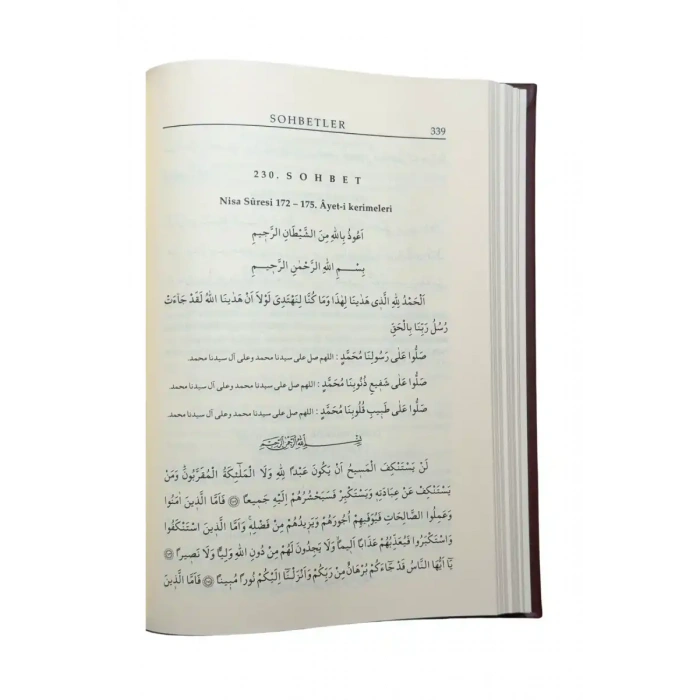 SOHBETLER
339
230. SOHBET
Nisa Sûresi 172 – 175. Âyet-i kerimeleri
اَعُوذُ بِاللهِ مِنَ الشَّيْطَانِ الرَّجِيمِ
بِسْمِ اللهِ الرَّحْمٰنِ الرَّحِيمِ
اَلْحَمْدُ لِلهِ الَّذِي هَدٰينَا لِهٰذَا وَمَا كُنَّا لِنَهْتَدِيَ لَوْلَا اَنْ هَدٰينَا اللهُ لَقَدْ جَاءَتْ
رُسُلُ رَبِّنَا بِالْحَقِّ
صَلُّوا عَلٰى رَسُولِنَا مُحَمَّدٍ : اللهم صل على سيدنا محمد وعلى آل سيدنا محمد.
صَلُّوا عَلٰى شَفِيعِ ذُنُوبِنَا مُحَمَّدٍ : اللهم صل على سيدنا محمد وعلى آل سيدنا محمد.
صَلُّوا عَلٰى طَبِيبِ قُلُوبِنَا مُحَمَّدٍ : اللهم صل على سيدنا محمد وعلى آل سيدنا محمد.
بِسْمِ اللهِ الرَّحْمٰنِ الرَّحِيمِ
لَنْ يَسْتَنْكِفَ الْمَسِيحُ اَنْ يَكُونَ عَبْدًا لِلهِ وَلَا الْمَلٰٓئِكَةُ الْمُقَرَّبُونَ وَمَنْ
يَسْتَنْكِفْ عَنْ عِبَادَتِهِ وَيَسْتَكْبِرْ فَسَيَحْشُرُهُمْ اِلَيْهِ جَمِيعًا ۝ فَاَمَّا الَّذِينَ اٰمَنُوا
وَعَمِلُوا الصَّالِحَاتِ فَيُوَفِّيهِمْ اُجُورَهُمْ وَيَزِيدُهُمْ مِنْ فَضْلِهِ وَاَمَّا الَّذِينَ اسْتَنْكَفُوا
وَاسْتَكْبَرُوا فَيُعَذِّبُهُمْ عَذَابًا اَلِيمًا وَلَا يَجِدُونَ لَهُمْ مِنْ دُونِ اللهِ وَلِيًّا وَلَا نَصِيرًا ۝
يَا اَيُّهَا النَّاسُ قَدْ جَاءَكُمْ بُرْهَانٌ مِنْ رَبِّكُمْ وَاَنْزَلْنَا اِلَيْكُمْ نُورًا مُبِينًا ۝ فَاَمَّا الَّذِينَ